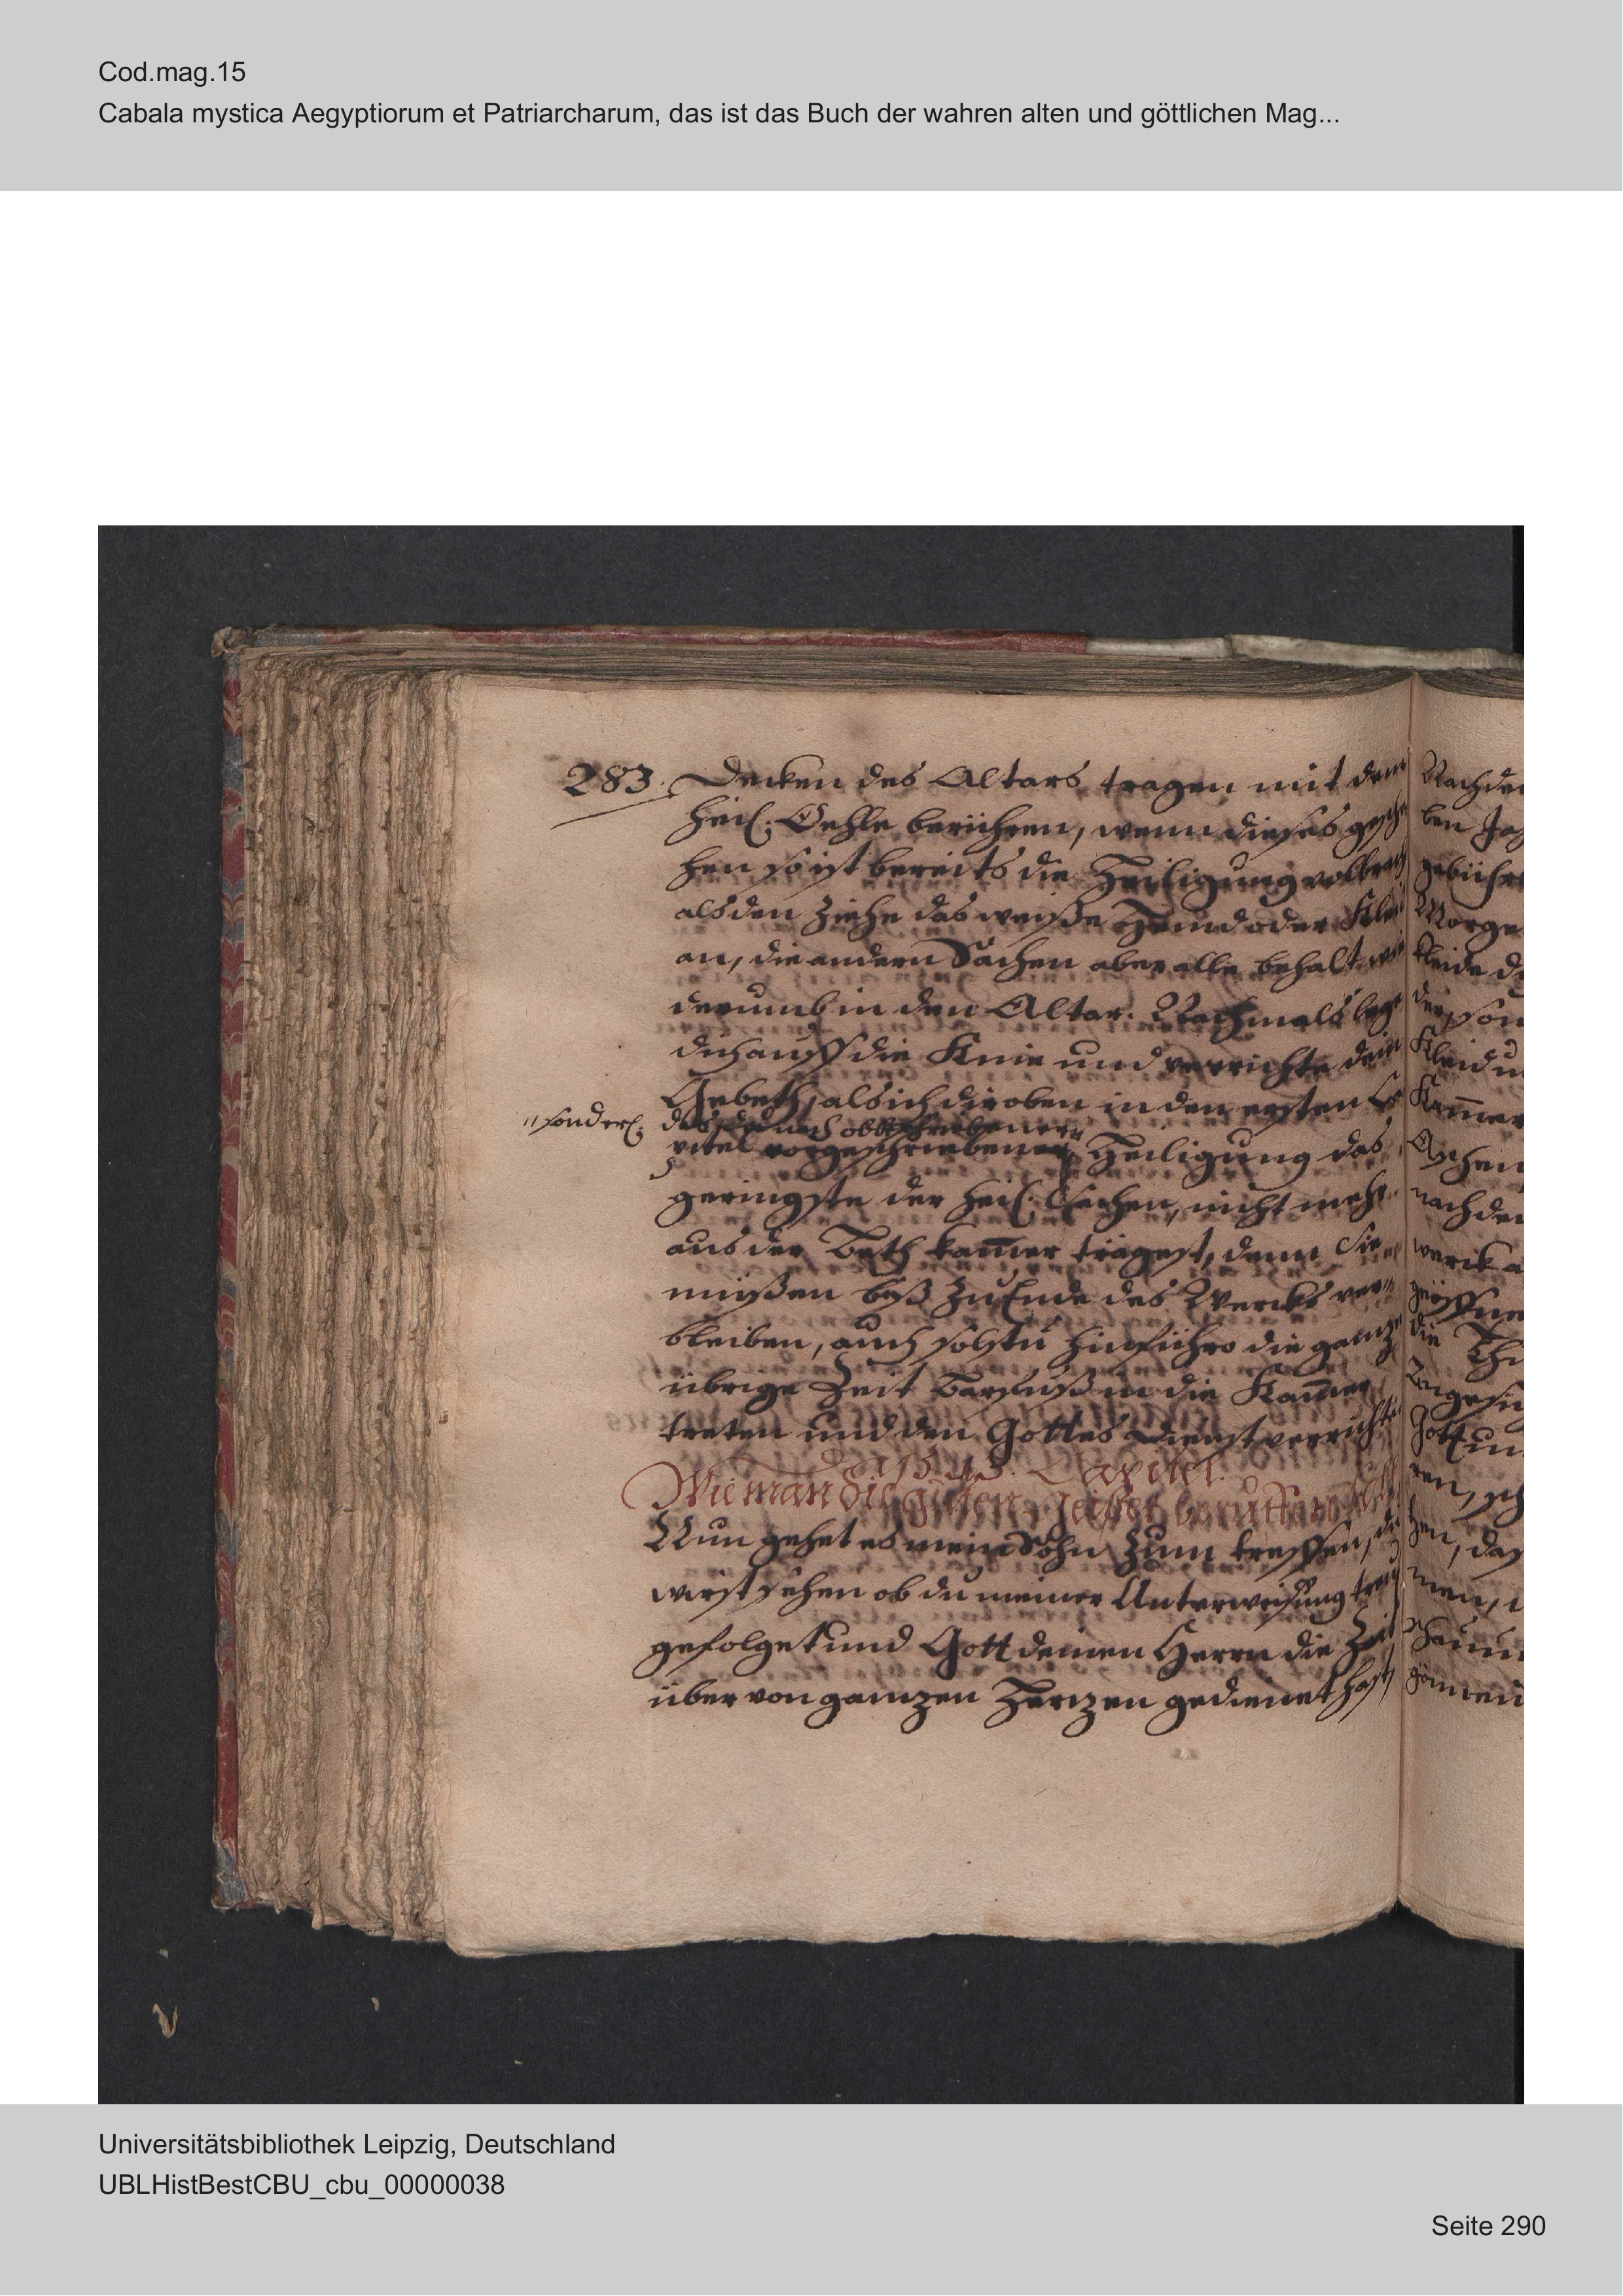 Cod.mag.15
Cabala mystica Aegyptiorum et Patriarcharum, das ist das Buch der wahren alten und göttlichen Mag...
283. Decken des Altars tragen mit dem
heil: Oehle berühren, wenn dieses gesche
hen so ist bereits die Heiligung volbracht
alsden ziehe das weiße Hemd oder Kleid
an, die andern Sachen aber alle behalt wie
derumb in den Altar. Nachmals lege
dich auff die Knie und verrichte dein
Gebeth, als ich dir oben in den ersten Ca
"sonderl:
pitel vorgeschriebener Heiligung das
geringste der heil: Sachen, nicht mehr
aus der Beth kam̅er trägest, denn sie
müßen biß zu Ende des Wercks ver"
bleiben, auch solstu hinführo die ganze
übrige Zeit barfuß in die Kam̅er
treten und den Gottes Dienst verrichten
Capitel.
Wie man die guten Geister beruffen soll
Nun gehet es mein Sohn zum treffen, du
wirst sehen ob du meiner Unterweisung treu
gefolget und Gott deinen Herrn die Zeit
über von ganzen Herzen gedienet hast,
Nachde
ben
gebühr
Morge
kleide d
der son
Kleid u
Kam̅er
Aschen
nachde
werck a
geöffne
die Th
Angesi
Gott un
ren, sch
hen, das
men,
Universitätsbibliothek Leipzig, Deutschland
UBLHistBestCBU_cbu_00000038
Seite 290